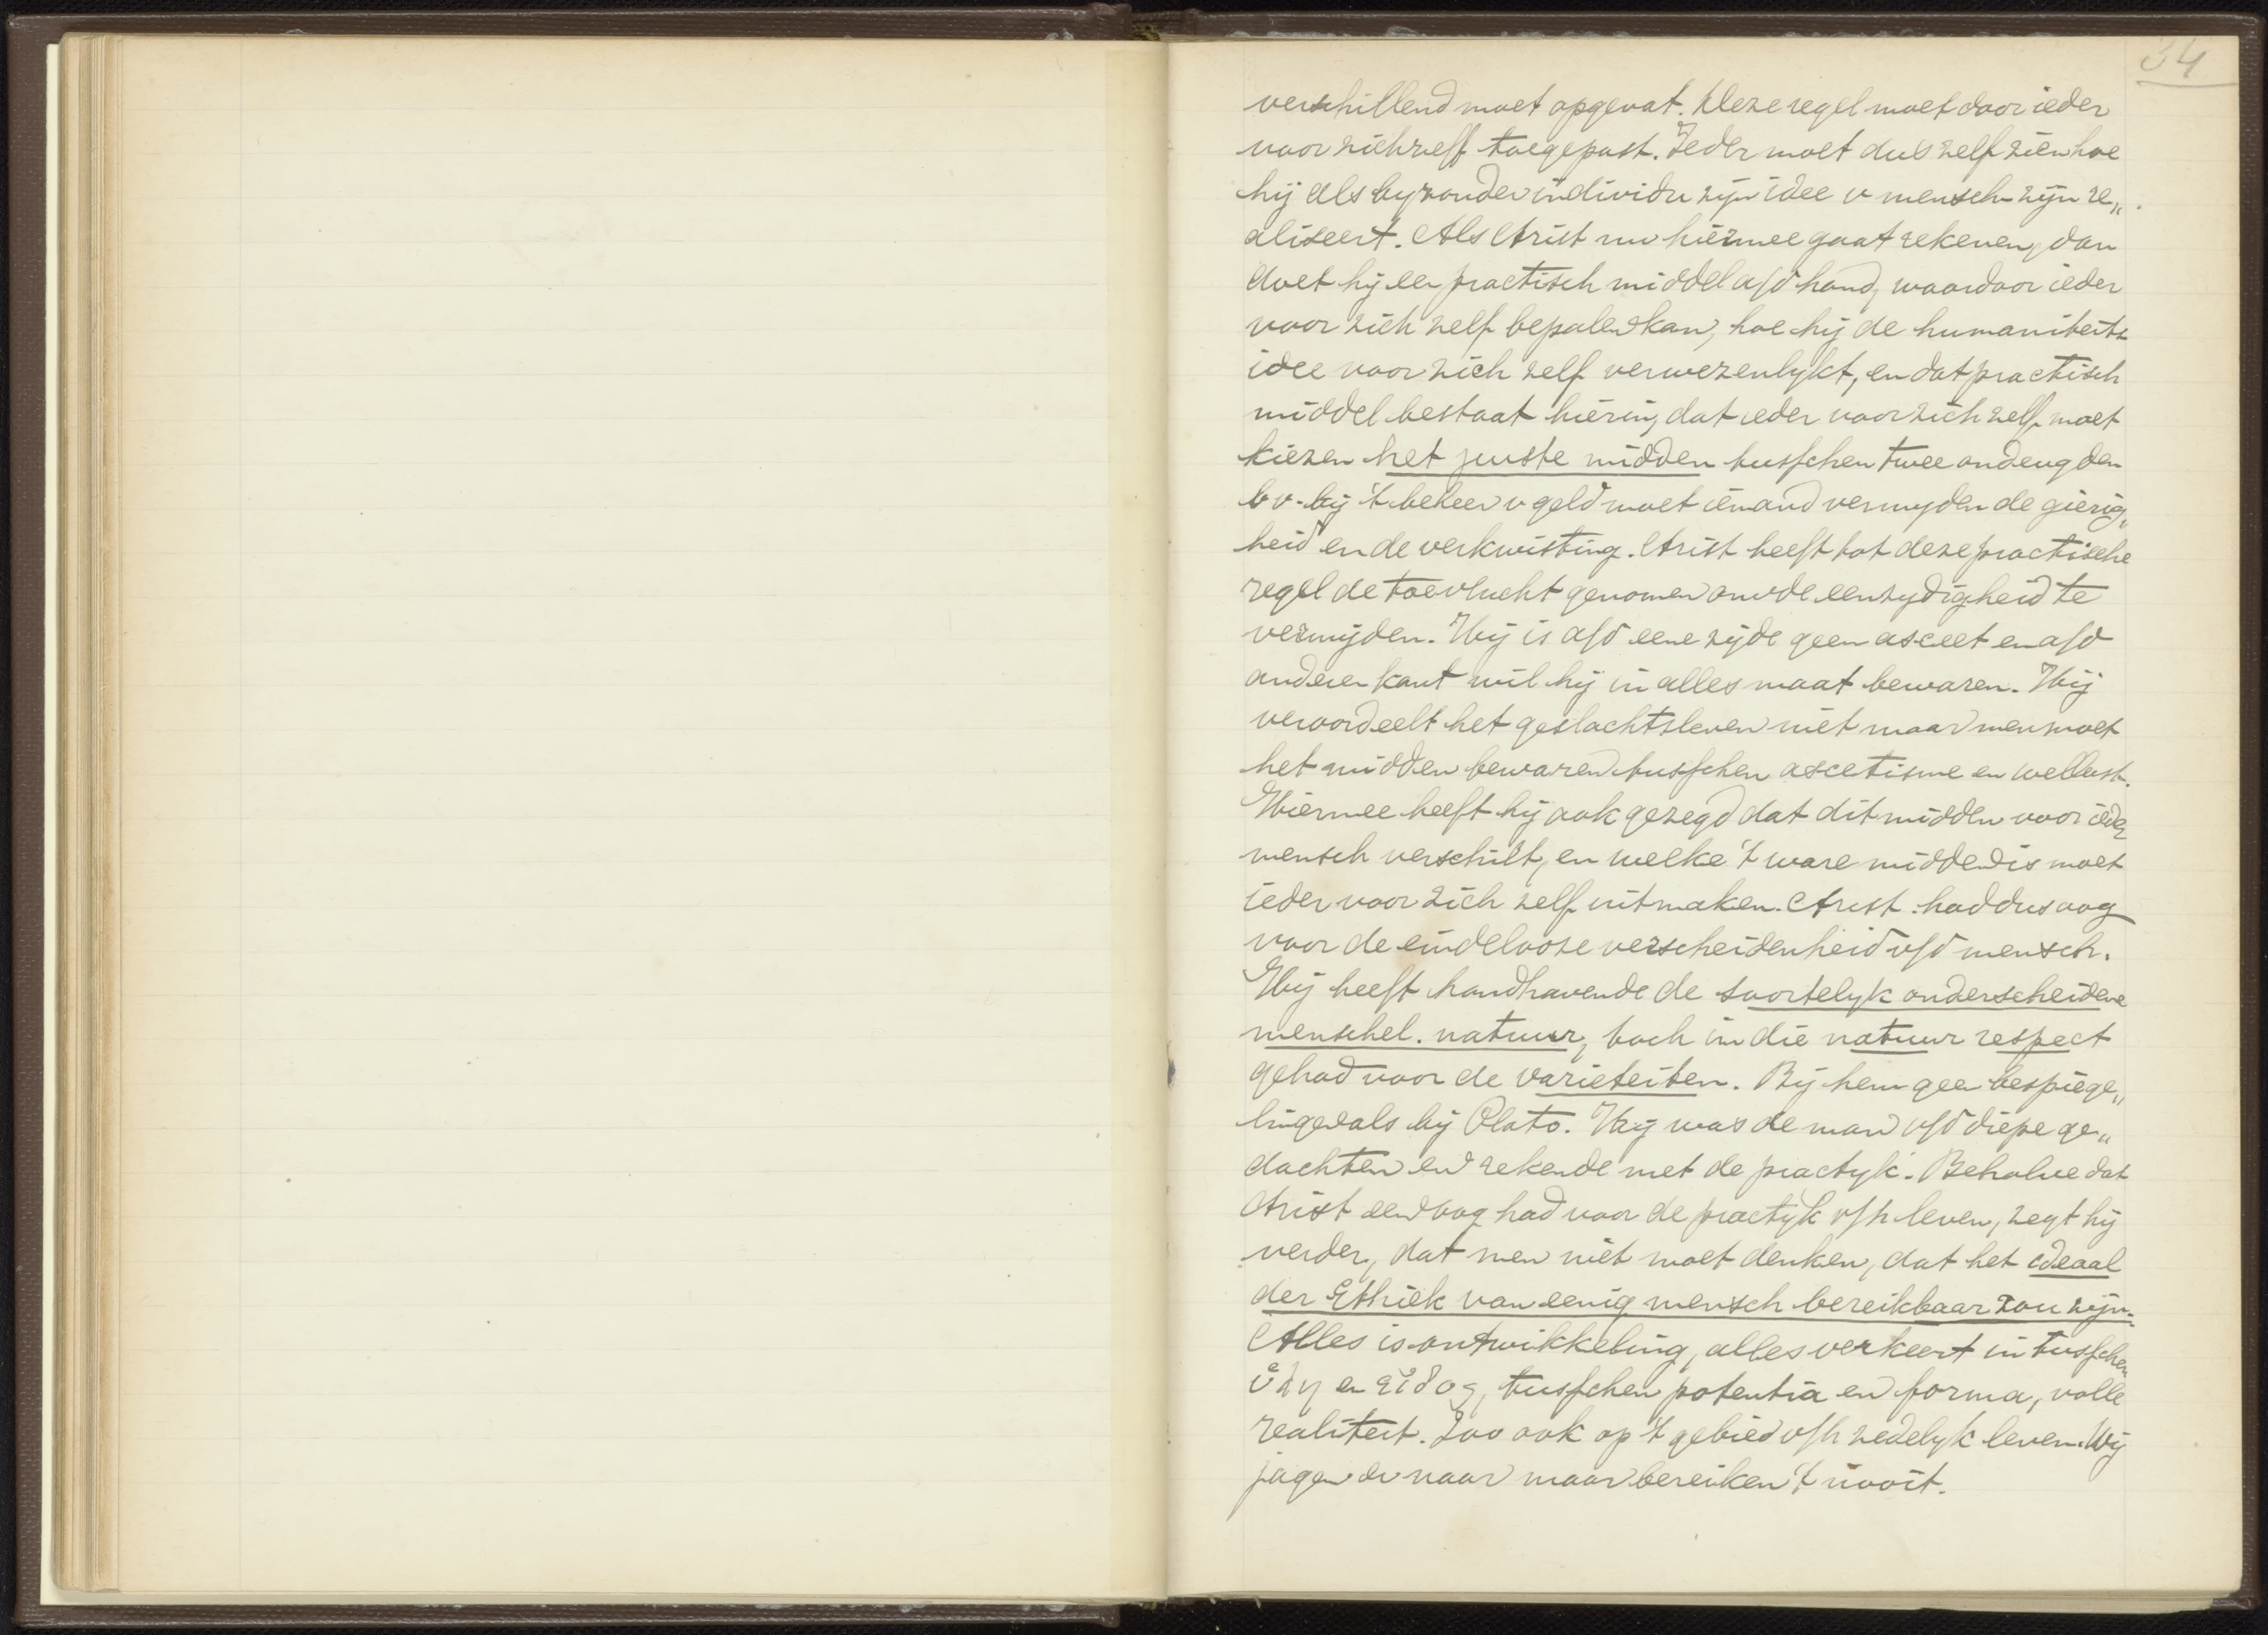 34
verschillend moet opgevat. Deze regel moet door ieder
voor zichzelf toegepast. Ieder moet dus zelf zien hoe
hij als byzonder individu zijn idee v mensch zijn re„
aliseert. Als Arist nu hiermee gaat rekenen, dan
doet hij een practisch middel a/d hand, waardoor ieder
voor zich zelf bepalen kan, hoe hij de humaniteits
idee voor zich zelf verwezenlykt, en dat practisch
middel bestaat hierin, dat ieder voor zich zelf moet
kiezen het juiste midden tusschen twee ondeugden
bv. bij 't beheer v geld moet iemand vermyden de gierig„
heid en de verkwisting. Arist heeft tot deze practische
regel de toevlucht genomen om de eenzydigheid te
vermijden. Hij is a/d eene zijde geen asceet en a/d
anderen kant wil hij in alles maat bewaren. Hij
veroordeelt het geslachtsleven niet maar men moet
het midden bewaren tusschen ascetisme en wellust.
Hiermee heeft hij ook gezegd dat dit midden voor ieder
mensch verschilt, en welke 't ware midden is moet
ieder voor zich zelf uitmaken. Arist. had dus oog
voor de eindelooze verscheidenheid v/d mensch.
Hij heeft handhavende de soortelyk onderscheidene
menschel. natuur, toch in die natuur respect
gehad voor de varieteiten. Bij hem geen bespiege„
lingen als bij Plato. Hij was de man v/d diepe ge„
dachten en rekende met de practyk. Behalve dat
Arist een oog had voor de practyk v/h leven, zegt hij
verder, dat men niet moet denken, dat het ideaal
der Ethiek van eenig mensch bereikbaar zou zijn.
Alles is ontwikkeling, alles verkeert in tusschen
ὕλη en εἶδος, tusschen potentia en forma, volle
realiteit. Zoo ook op 't gebied v/h zedelyk leven. Wij
jagen er naar maar bereiken 't nooit.